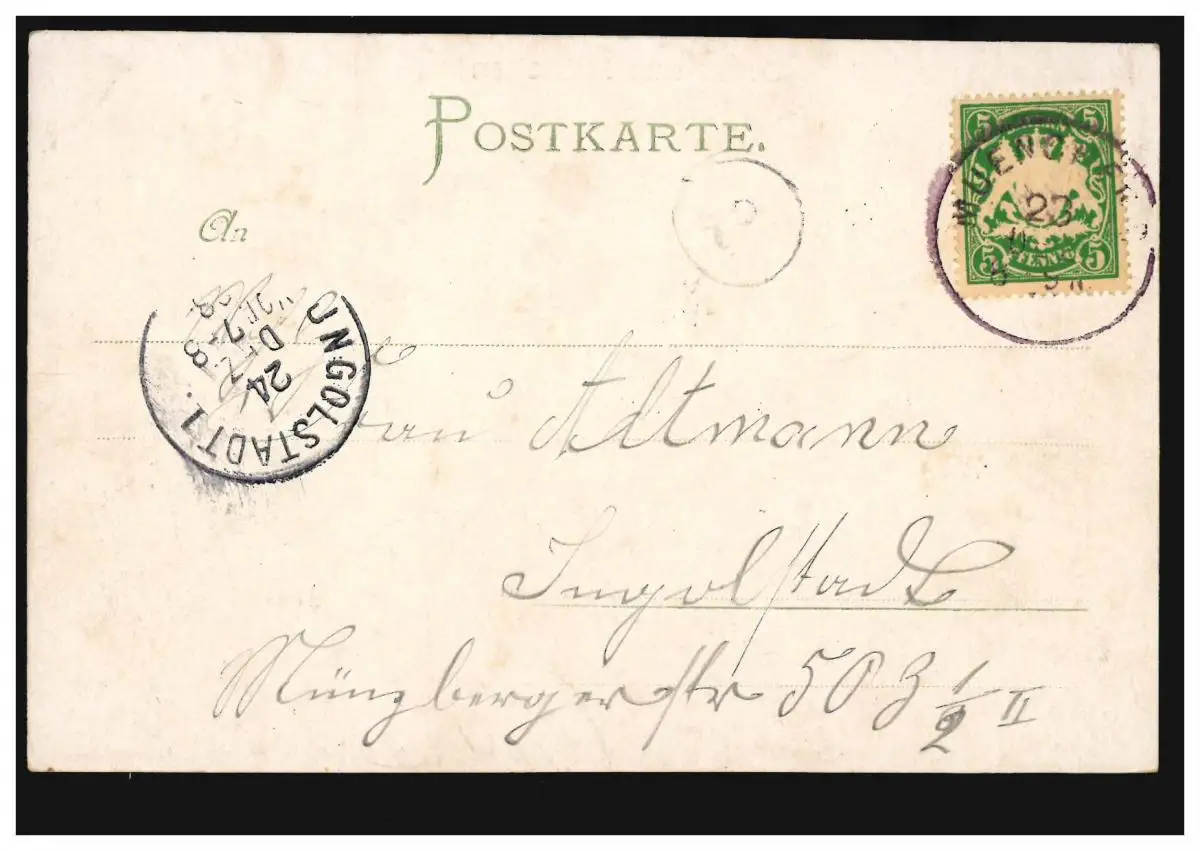 POSTKARTE.
An
5 5
MUENCHEN
23
5 5
PFENNIG
INGOLSTADT 1.
24
DEZ
7-8
Frau Altmann
Ingolstadt
Münzbergerstr 503 1/2 II